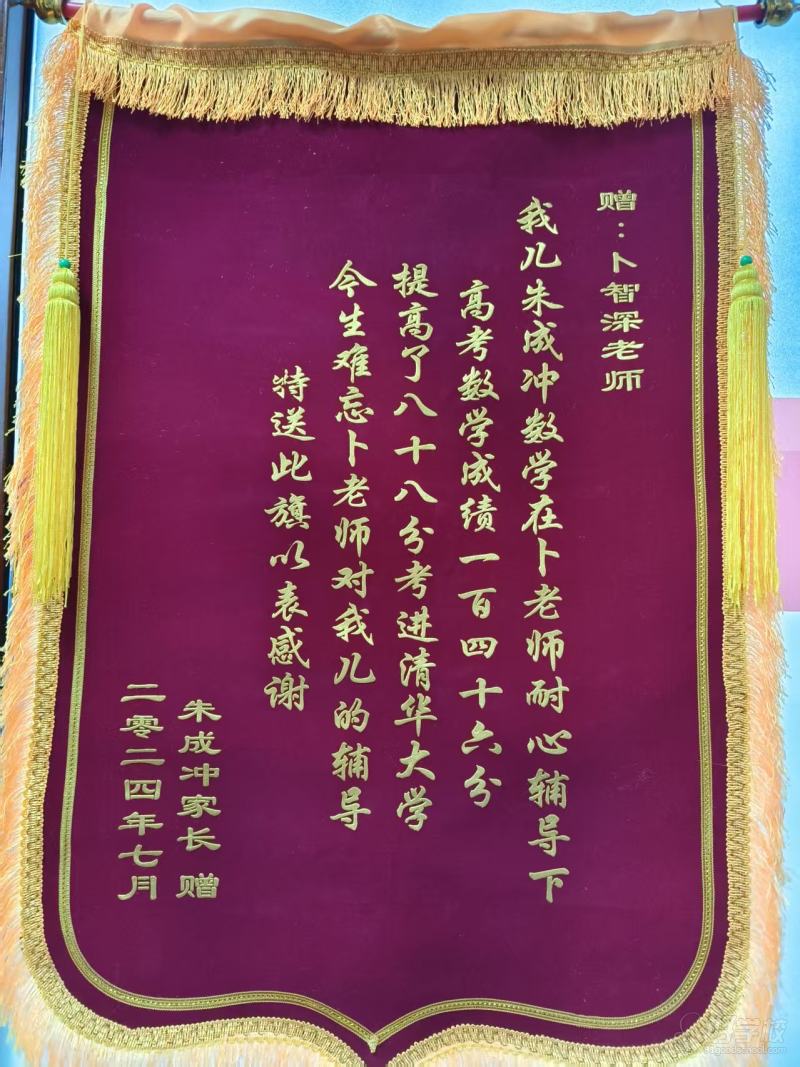 赠：卜智深老师
我儿朱成冲数学在卜老师耐心辅导下
高考数学成绩一百四十六分
提高了八十八分考进清华大学
今生难忘卜老师对我儿的辅导
特送此旗以表感谢
朱成冲家长 赠
二零二四年七月